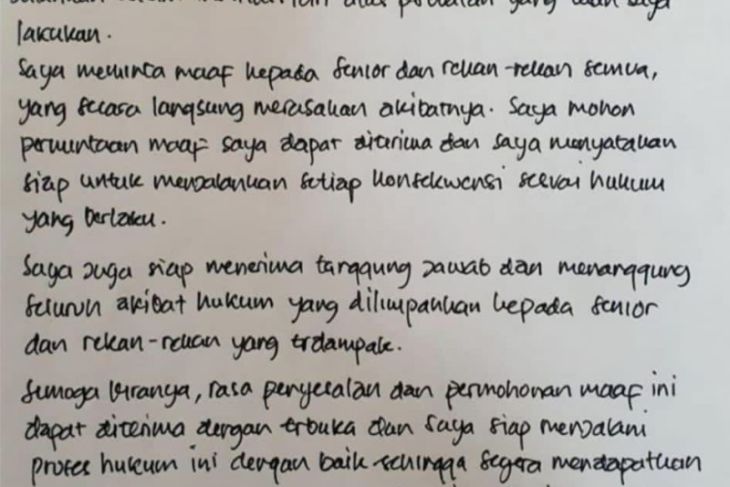 atas perbuatan yang telah saya
lakukan.
Saya meminta maaf kepada senior dan rekan-rekan semua,
yang secara langsung merasakan akibatnya. Saya mohon
permintaan maaf saya dapat diterima dan saya menyatakan
siap untuk menjalankan setiap konsekwensi sesuai hukum
yang berlaku.
Saya juga siap menerima tanggung jawab dan menanggung
seluruh akibat hukum yang dilimpahkan kepada senior
dan rekan-rekan yang terdampak.
Semoga kiranya, rasa penyesalan dan permohonan maaf ini
dapat diterima dengan terbuka dan saya siap menjalani
proses hukum ini dengan baik sehingga segera mendapatkan